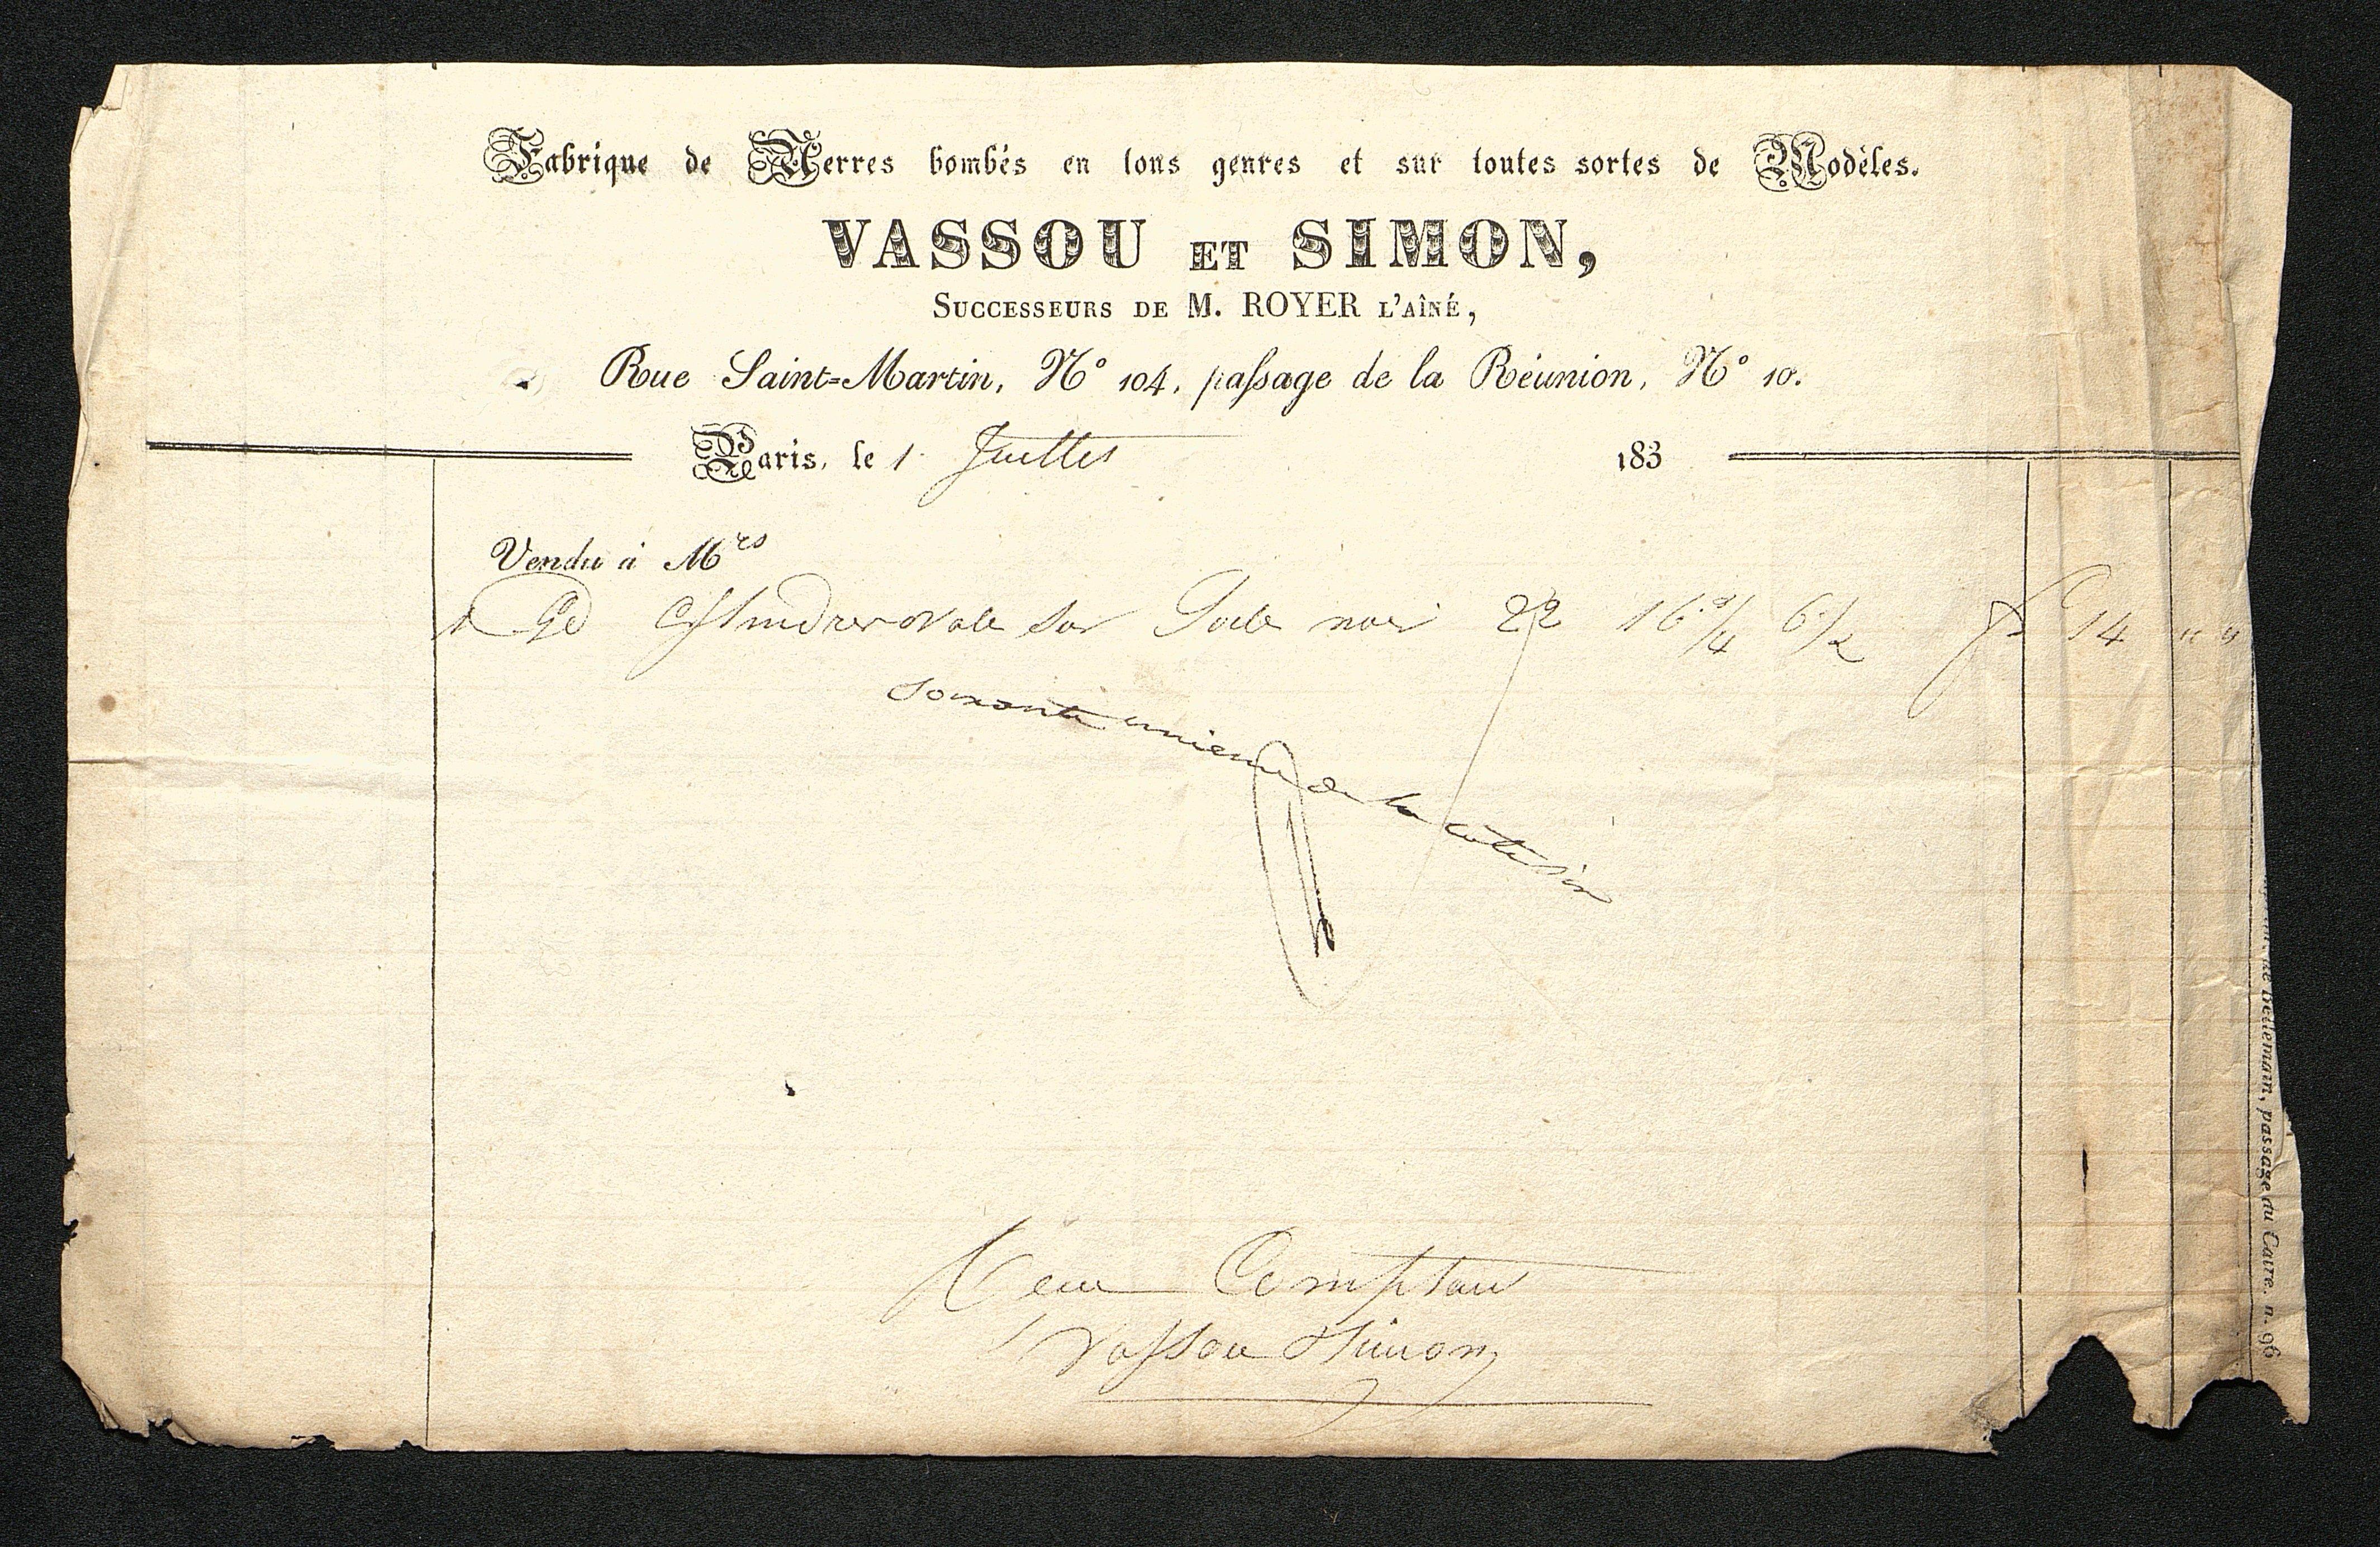 Fabrique de Verres bombés en tous genres et sur toutes sortes de Modèles.
VASSOU ET SIMON,
SUCCESSEURS DE M. ROYER L'AÎNÉ,
Rue Saint-Martin, N° 104, passage de la Réunion, N° 10.
Paris, le 1 Juillet 183
Vendu à Mrs
1 Gd Cylindre ovale sur Socle noir 22 16 3/4 6 1/2 f 14 " "
soixante unieme de la cote
Compтant
Vassou Simon
de Bellemain, passage du Caire. n. 96